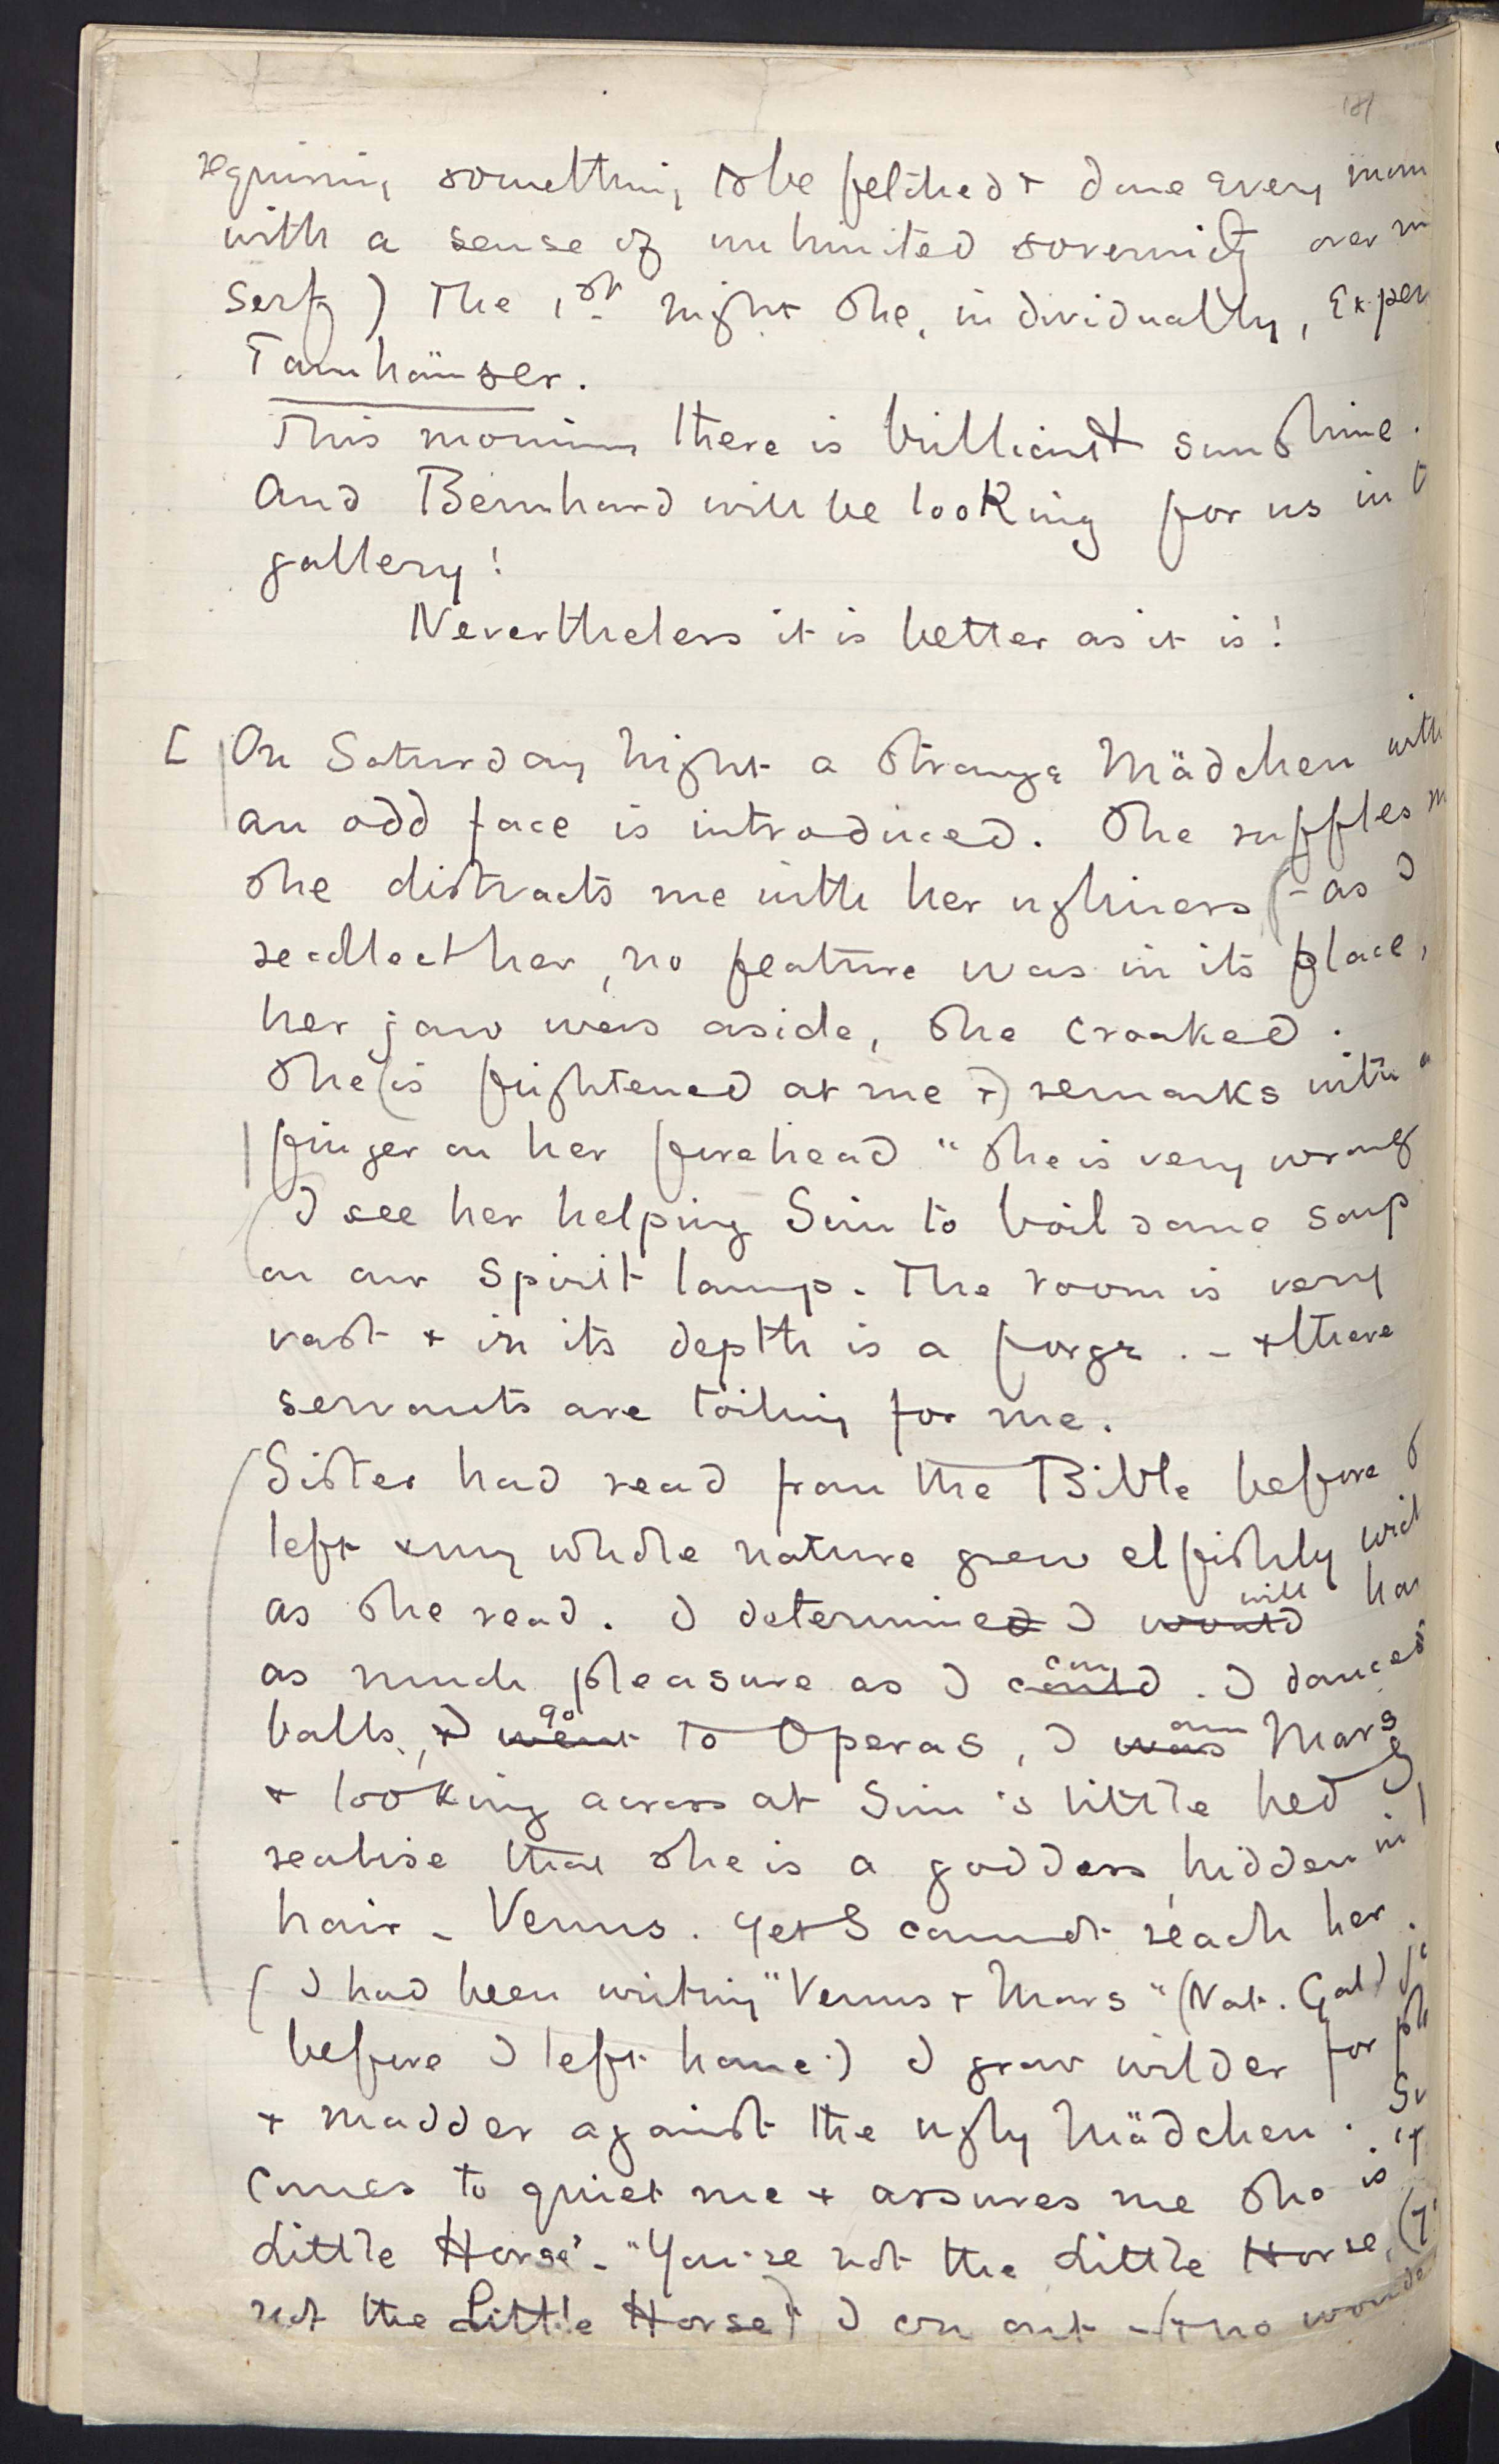 requiring something to be fetched & done every mom
with a sense of unlimited sovernity over m
serfs) The 1st night she, individually, exper
Tannhäuser.
This morning there is brilliant sunshine.
And Bernhard will be looking for us in t
gallery!
Nevertheless it is better as it is!
[ On Saturday night a strange Mädchen with
an odd face is introduced. She ruffles m
she distracts me with her ugliness (– as I
recollect her, no feature was in its place,
her jaw was aside, she croaked.
She (is frightened at me &) remarks with a
finger on her forehead "She is very wrong
(I see her helping Sim to boil some soup
on our spirit lamp. The room is very
vast & in its depth is a forge. – & there
servants are toiling for me.
(Sister had read from the Bible before s
left & my whole nature grew elfishly wick
as she read. I determined I would will hav
as much pleasure as I could can. I dance at
balls, & I went go to Operas, I was am Mars
& looking across at Sim's little bed I
realise that she is a goddess, hidden in
hair – Venus. Yet I cannot reach her.
(I had been writing "Venus & Mars" (Nat. Gal)
before I left home.) I grow wilder for pl
& madder against the ugly Mädchen. Si
comes to quiet me & assures me she is 'T
Little Horse' – "You're not the Little Horse, (Y
not the Little Horse)" I cry out – (& no wonde